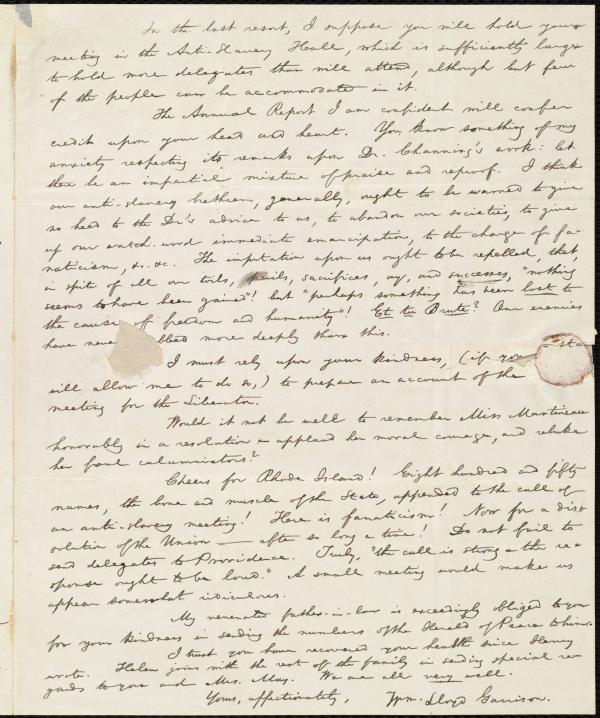 In the last resort, I suppose you will hold your
meeting in the Anti-Slavery Hall, which is sufficiently large
to hold more delegates than will attend, although but few
of the people can be accommodated in it.
The Annual Report I am confident will confer
credit upon your head and heart. You know something of my
anxiety respecting its remarks upon Dr. Channing's work: let
there be an impartial mixture of praise and reproof. I think
our anti-slavery brethren, generally, ought to be warned to give
no heed to the Dr.'s advice to us, to abandon our societies, to give
up our watch-word immediate emancipation, to the charge of fa-
naticism, &c. &c. The imputation upon us ought to be repelled, that,
in spite of all our toils, perils, sacrifices, ay, and successes, "nothing
seems to have been gained"! but "perhaps something has been lost to
the cause of freedom and humanity"! Et tu Brute? Our enemies
have never more deeply than this.
I must rely upon your kindness, (if you
will allow me to do so,) to prepare an account of the
meeting for the Liberator.
Would it not be well to remember Miss Martineau
honorably in a resolution—applaud her moral courage, and rebuke
her foul calumniators?
Cheers for Rhode Island! Eight hundred and fifty
names, the bone and muscle of the State, appended to the call of
an anti-slavery meeting! Here is fanaticism! Now for a dis-
solution of the Union — after so long a time! Do not fail to
send delegates to Providence. Truly, "the call is strong—the re-
sponse ought to be loud." A small meeting would make us
appear somewhat ridiculous.
My venerated father-in-law is exceedingly obliged to you
for your kindness in sending the numbers of the Herald of Peace to him.
I trust you have recovered your health since Henry
wrote. Helen joins with the rest of the family in sending special re-
gards to you and Mrs. May. We are all very well.
Yours, affectionately, Wm. Lloyd Garrison.